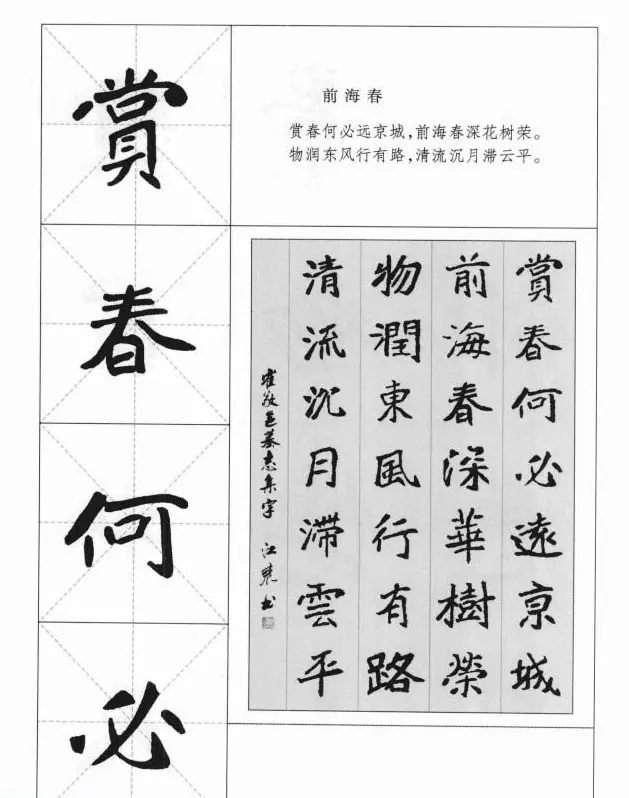 前海春
赏春何必远京城，前海春深花树荣。
物润东风行有路，清流沉月滞云平。
赏
春
何
必
賞春何必遠京城
前海春深華樹榮
物潤東風行有路
清流沉月滞雲平
崔敬邕墓志集字 江 书